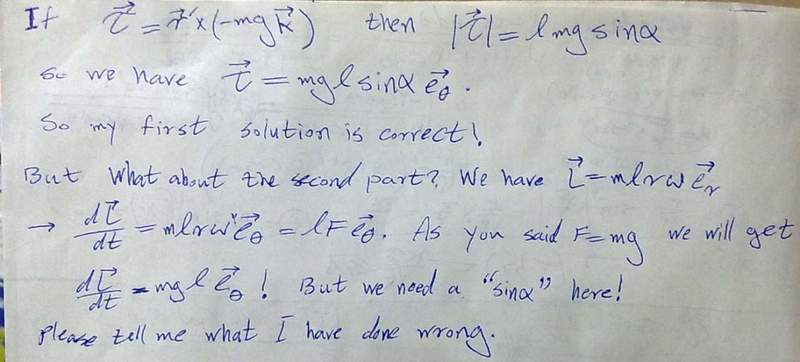 If τ⃗ = r⃗ × (-mg k⃗) then |τ⃗| = l mg sinα
so we have τ⃗ = mgl sinα e⃗_θ.
So my first solution is correct!
But what about the second part? We have L⃗ = mlrω e⃗_r
→ dL⃗/dt = mlrω² e⃗_θ = lF e⃗_θ. As you said F=mg we will get
dL⃗/dt = mgl e⃗_θ! But we need a "sinα" here!
please tell me what I have done wrong.